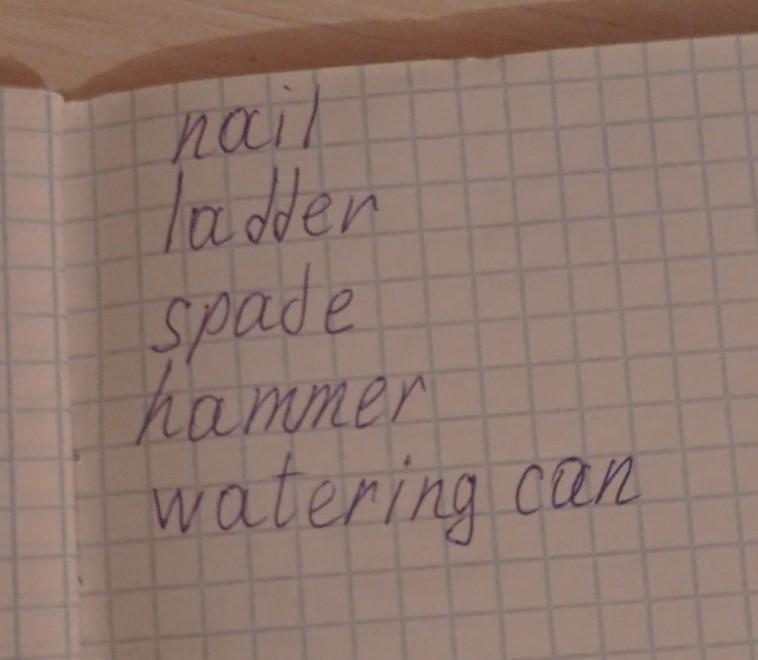 nail
ladder
spade
hammer
watering can